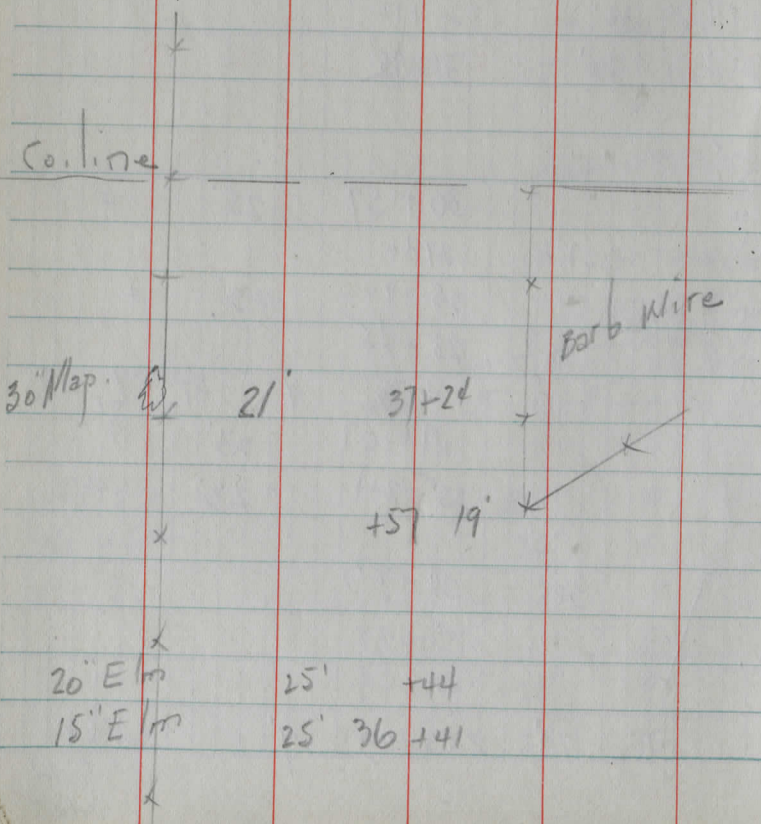 Co. line
Barb Wire
30" Map. 21' 37+24
+57 19'
20" Elm 25' +44
15" Elm 25' 36 +41